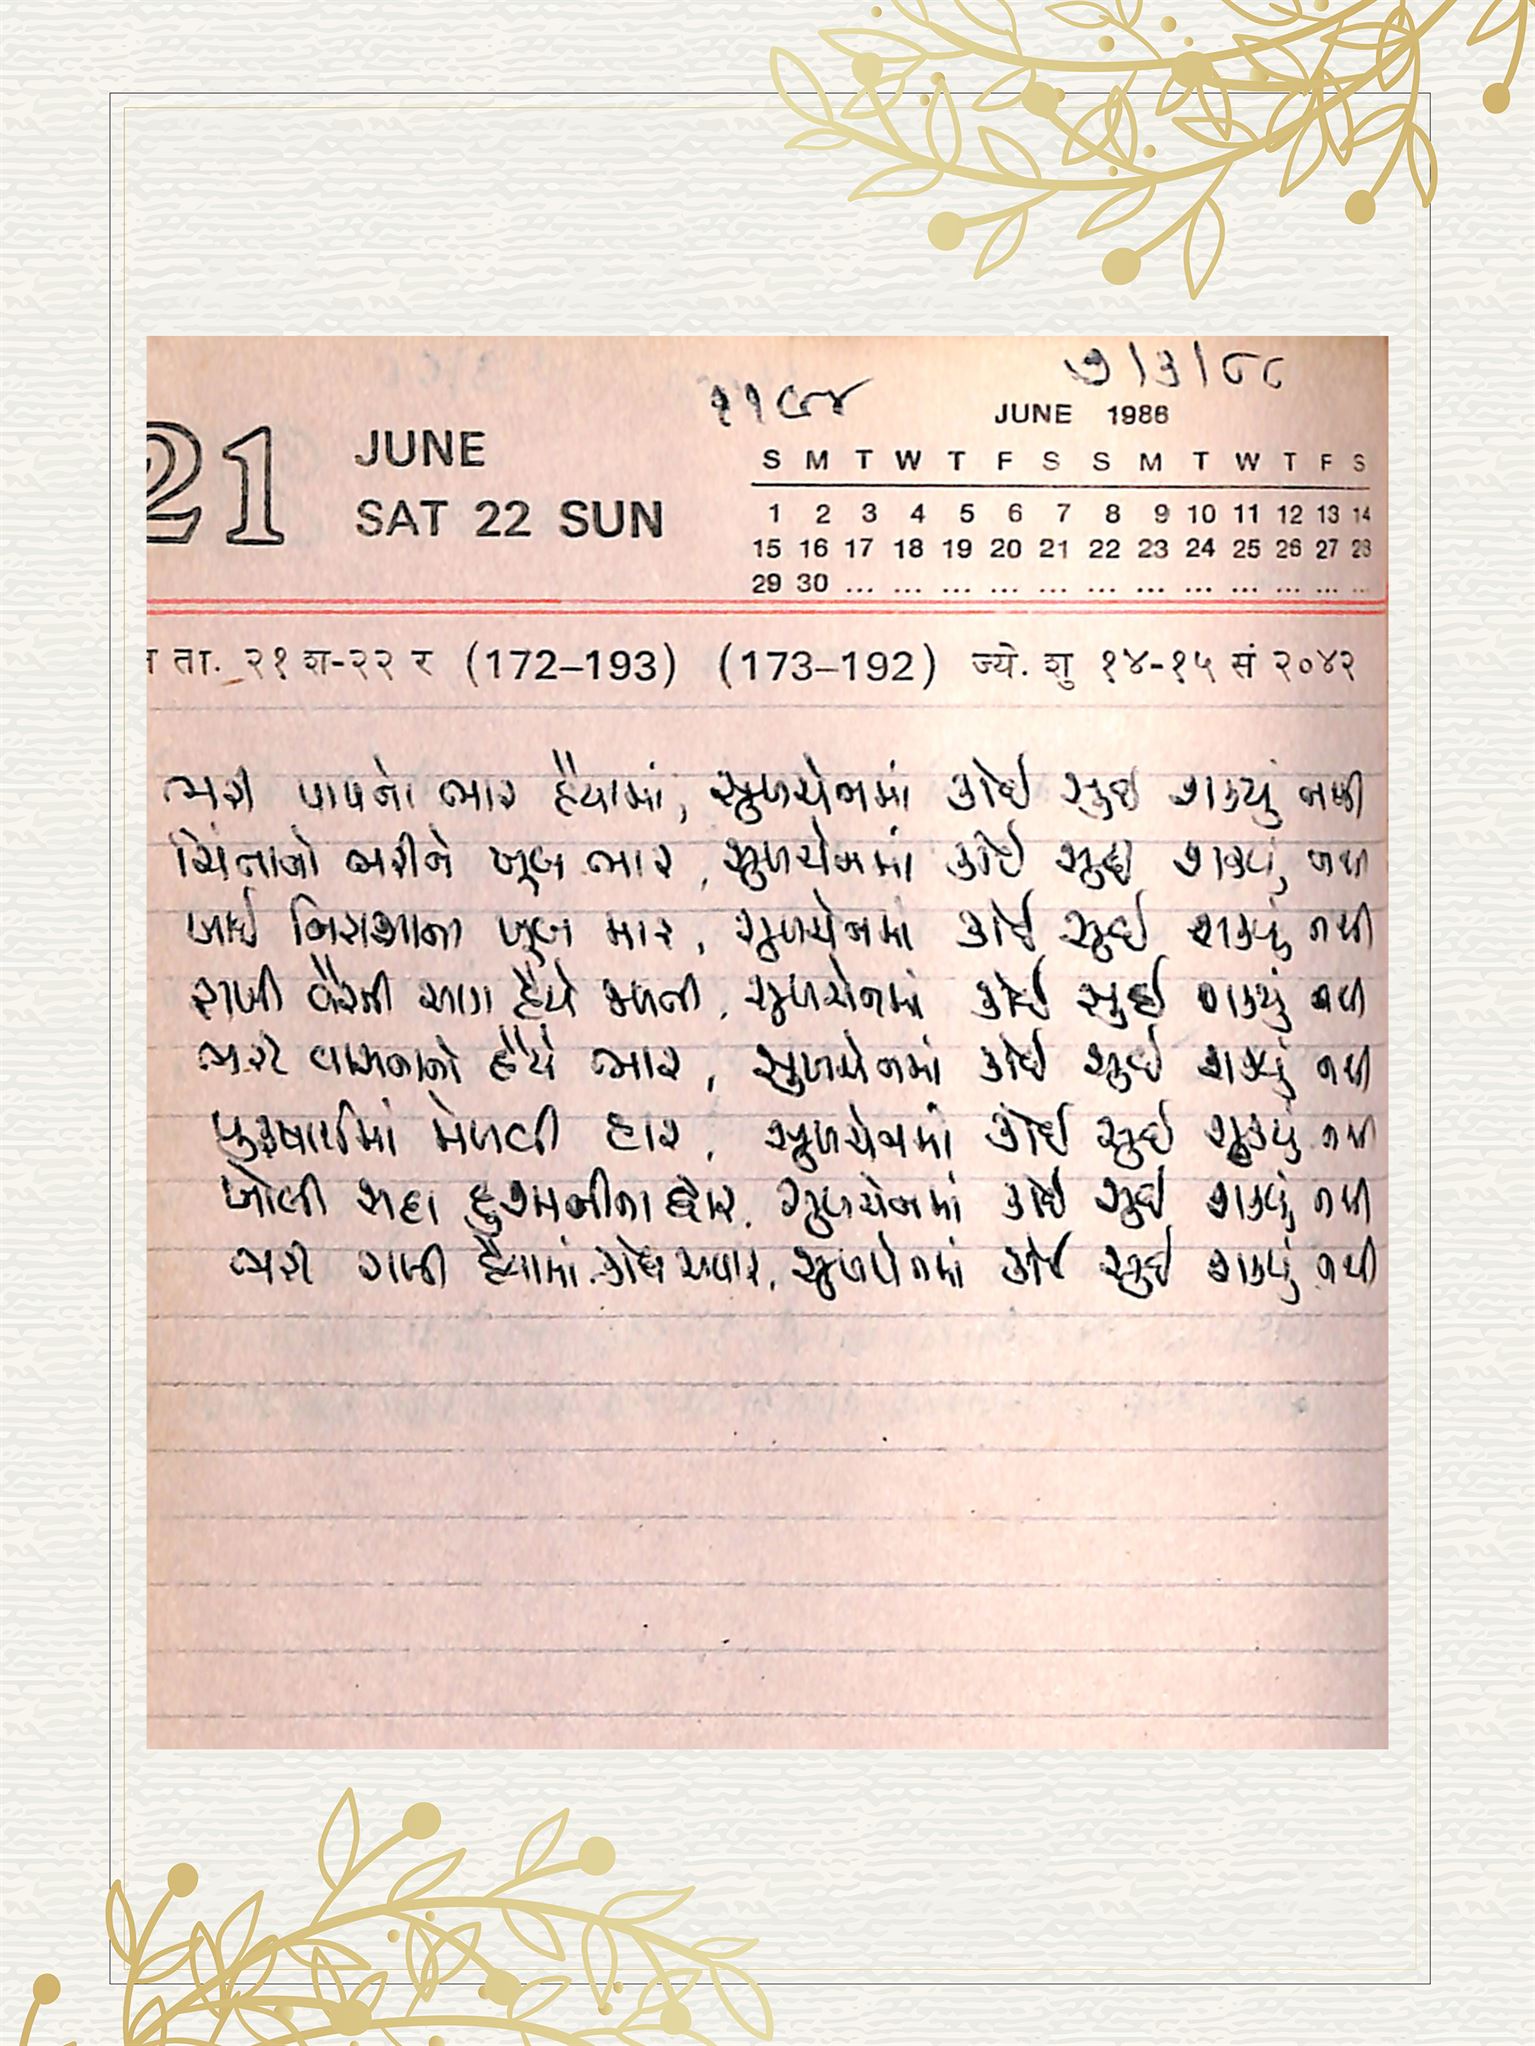 ૭/૩/૮૮
૧૧૯૪
JUNE 1986
21 JUNE
SAT 22 SUN
S M T W T F S S M T W T F S
1 2 3 4 5 6 7 8 9 10 11 12 13 14
15 16 17 18 19 20 21 22 23 24 25 26 27 28
29 30 ... ... ... ... ... ... ... ... ... ... ... ...
ता. २१ श-२२ र (172–193) (173–192) ज्ये. शु १४-१५ सं २०४२
ભરી પાપનો ભાર હૈયામાં, સુખચેનમાં કોઈ સુઈ શક્યું નથી
ચિંતાનો ભરીને ખૂબ ભાર, સુખચેનમાં કોઈ સુઈ શક્યું નથી
ખાઈ નિરાશાના ખુબ માર, સુખચેનમાં કોઈ સુઈ શક્યું નથી
રાખી વૈરની આગ હૈયે જલતી, સુખચેનમાં કોઈ સુઈ શક્યું નથી
ભરી વાસનાનો હૈયે ભાર, સુખચેનમાં કોઈ સુઈ શક્યું નથી
પુરુષાર્થમાં મેળવી હાર, સુખચેનમાં કોઈ સુઈ શક્યું નથી
ખોલી સદા દુશ્મનીના દ્વાર, સુખચેનમાં કોઈ સુઈ શક્યું નથી
ભરી રાખી હૈયામાં ક્રોધ અપાર, સુખચેનમાં કોઈ સુઈ શક્યું નથી